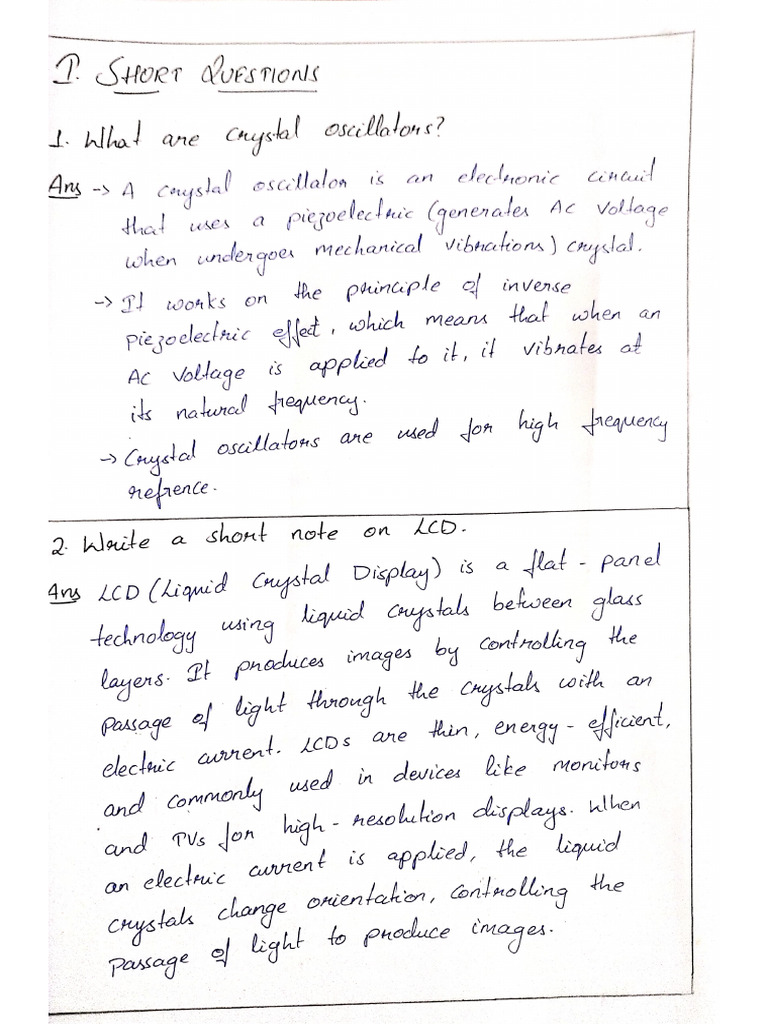 I. SHORT QUESTIONS
1. What are crystal oscillators?
Ans → A crystal oscillator is an electronic circuit
that uses a piezoelectric (generates AC Voltage
when undergoes mechanical vibrations) crystal.
→ It works on the principle of inverse
piezoelectric effect, which means that when an
AC Voltage is applied to it, it vibrates at
its natural frequency.
→ Crystal oscillators are used for high frequency
refrence.
2. Write a short note on LCD.
Ans LCD (Liquid Crystal Display) is a flat-panel
technology using liquid crystals between glass
layers. It produces images by controlling the
passage of light through the crystals with an
electric current. LCDs are thin, energy-efficient,
and commonly used in devices like monitors
and TVs for high-resolution displays. When
an electric current is applied, the liquid
crystals change orientation, controlling the
passage of light to produce images.